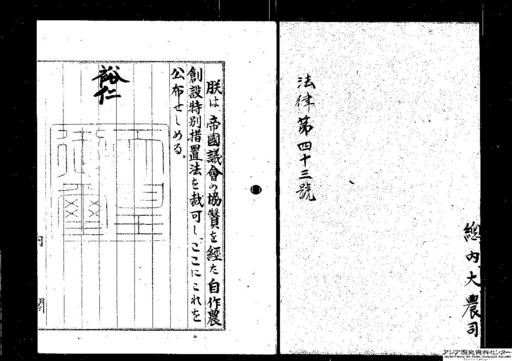 法律第四十三號
總内大農司
朕は帝國議會の協贊を經た自作農
創設特別措置法を裁可し、ここにこれを
公布せしめる。
裕仁
内閣
アジア歴史資料センター